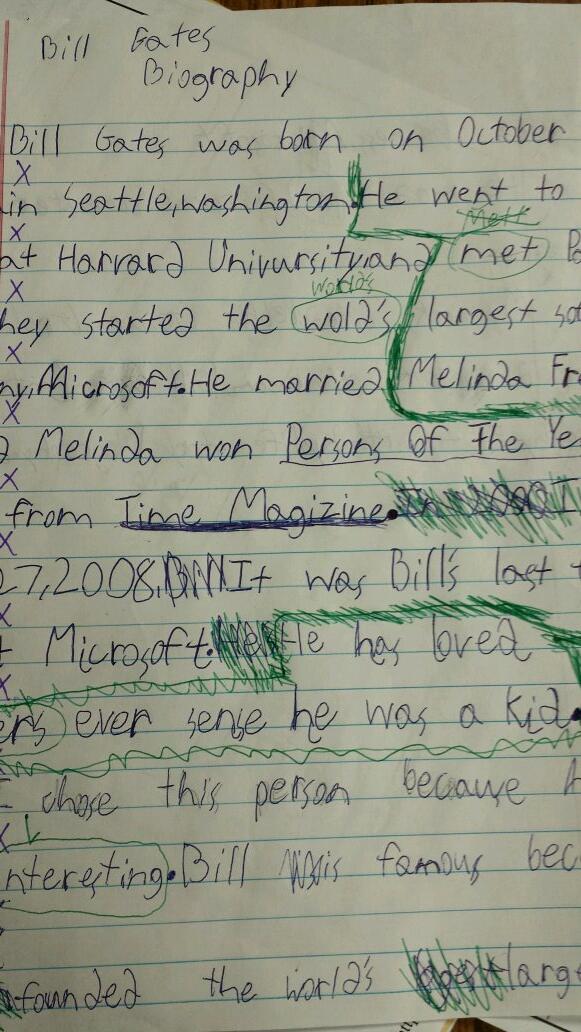 Bill Gates
Biography
Bill Gates was born on October
in Seattle,washington.He went to
Mett
at Harvard Univursity,and met
world's
hey started the wold's largest
ny,Microsoft.He married Melinda Fr
Melinda won Persons Of The Ye
from Time Magizine.
27,2008, It was Bill's last t
Microsoft. He has loved
ers ever sense he was a kid.
I chose this person because h
nteresting.Bill is famous bec
founded the world's larg